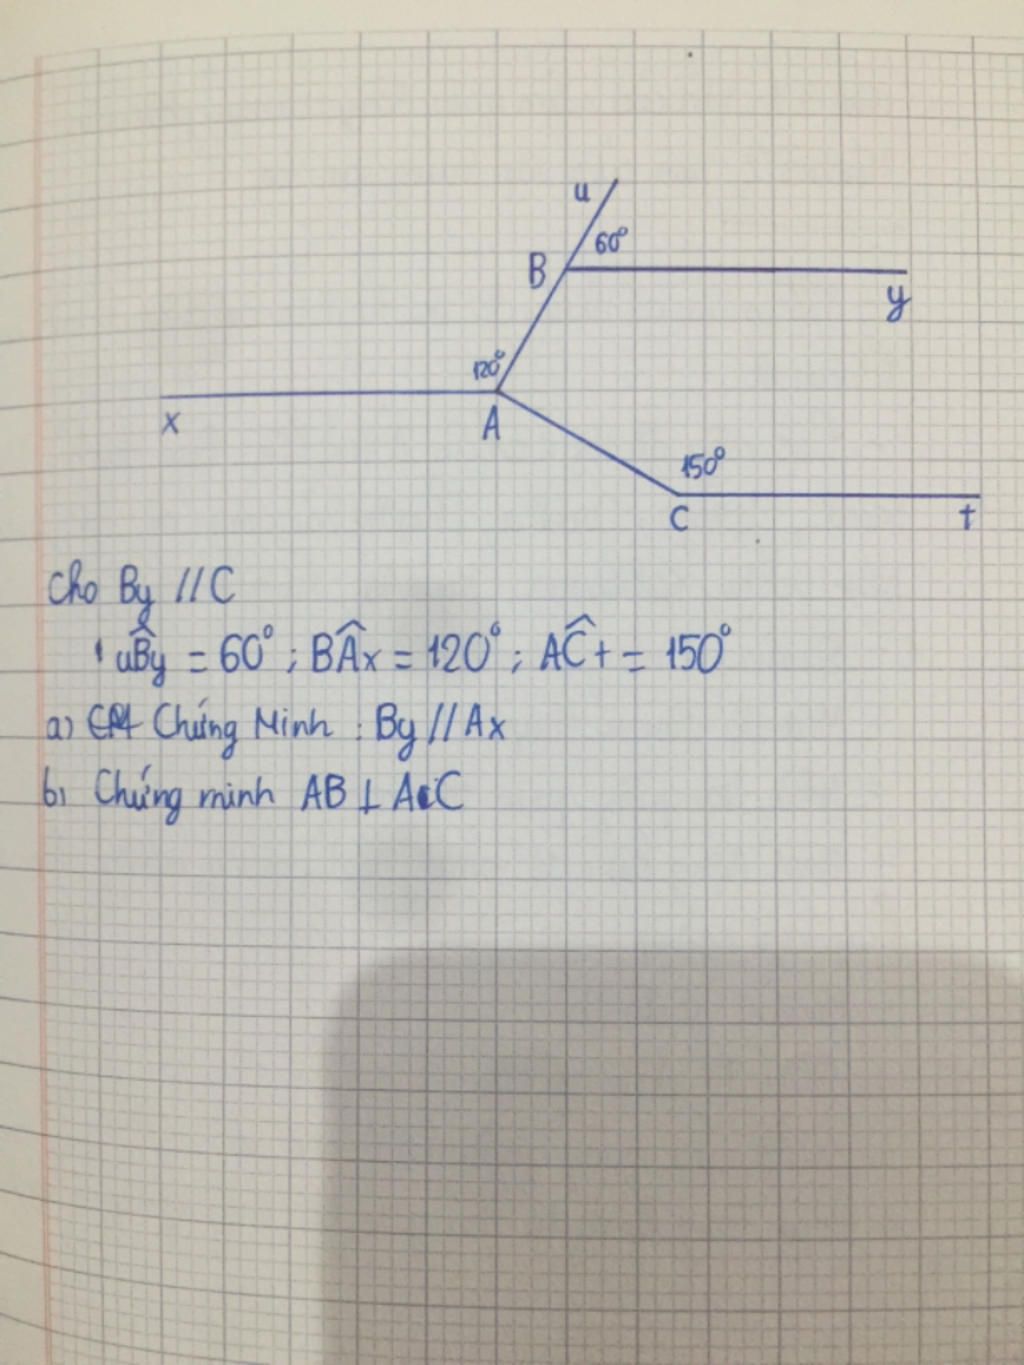 u
60°
B
y
120°
x
A
150°
C
t
Cho By // C
uBy = 60°; BAx = 120°; ACt = 150°
a) Chứng Minh : By // Ax
b) Chứng minh AB ⊥ AC